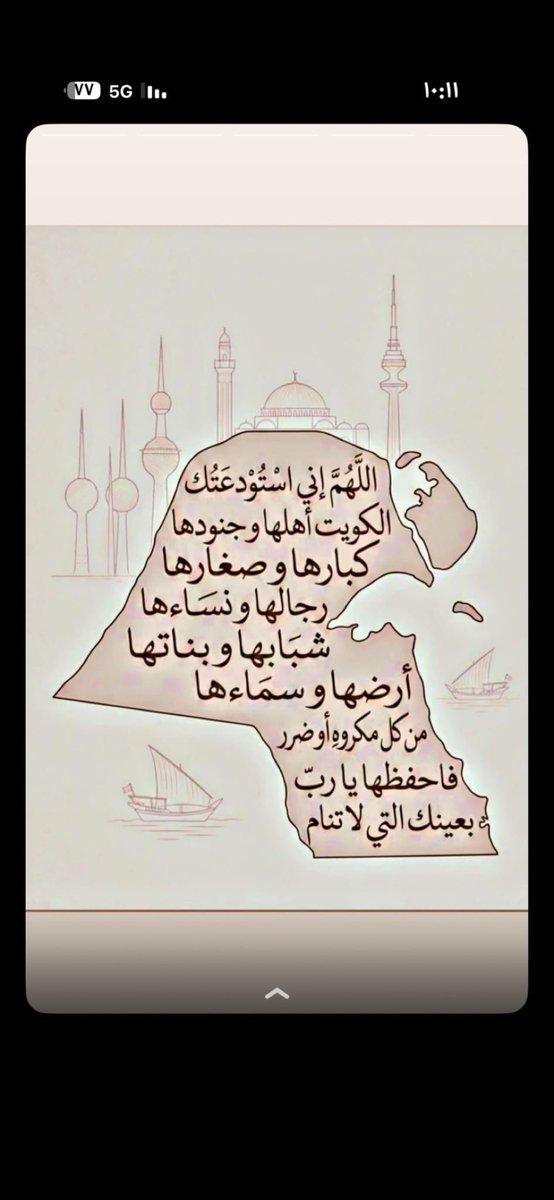 ١٠:١١
5G
٧٧
اللَّهُمَّ إني اسْتُوْدعَتُك
الكويت أهلها و جنودها
كبارها و صغارها
رجالها و نسَاءها
شبَابها و بناتها
أرضها و سمَاءها
من كل مكروهِ أو ضرر
فاحفظها يا ربّ
بعينك التي لا تنام